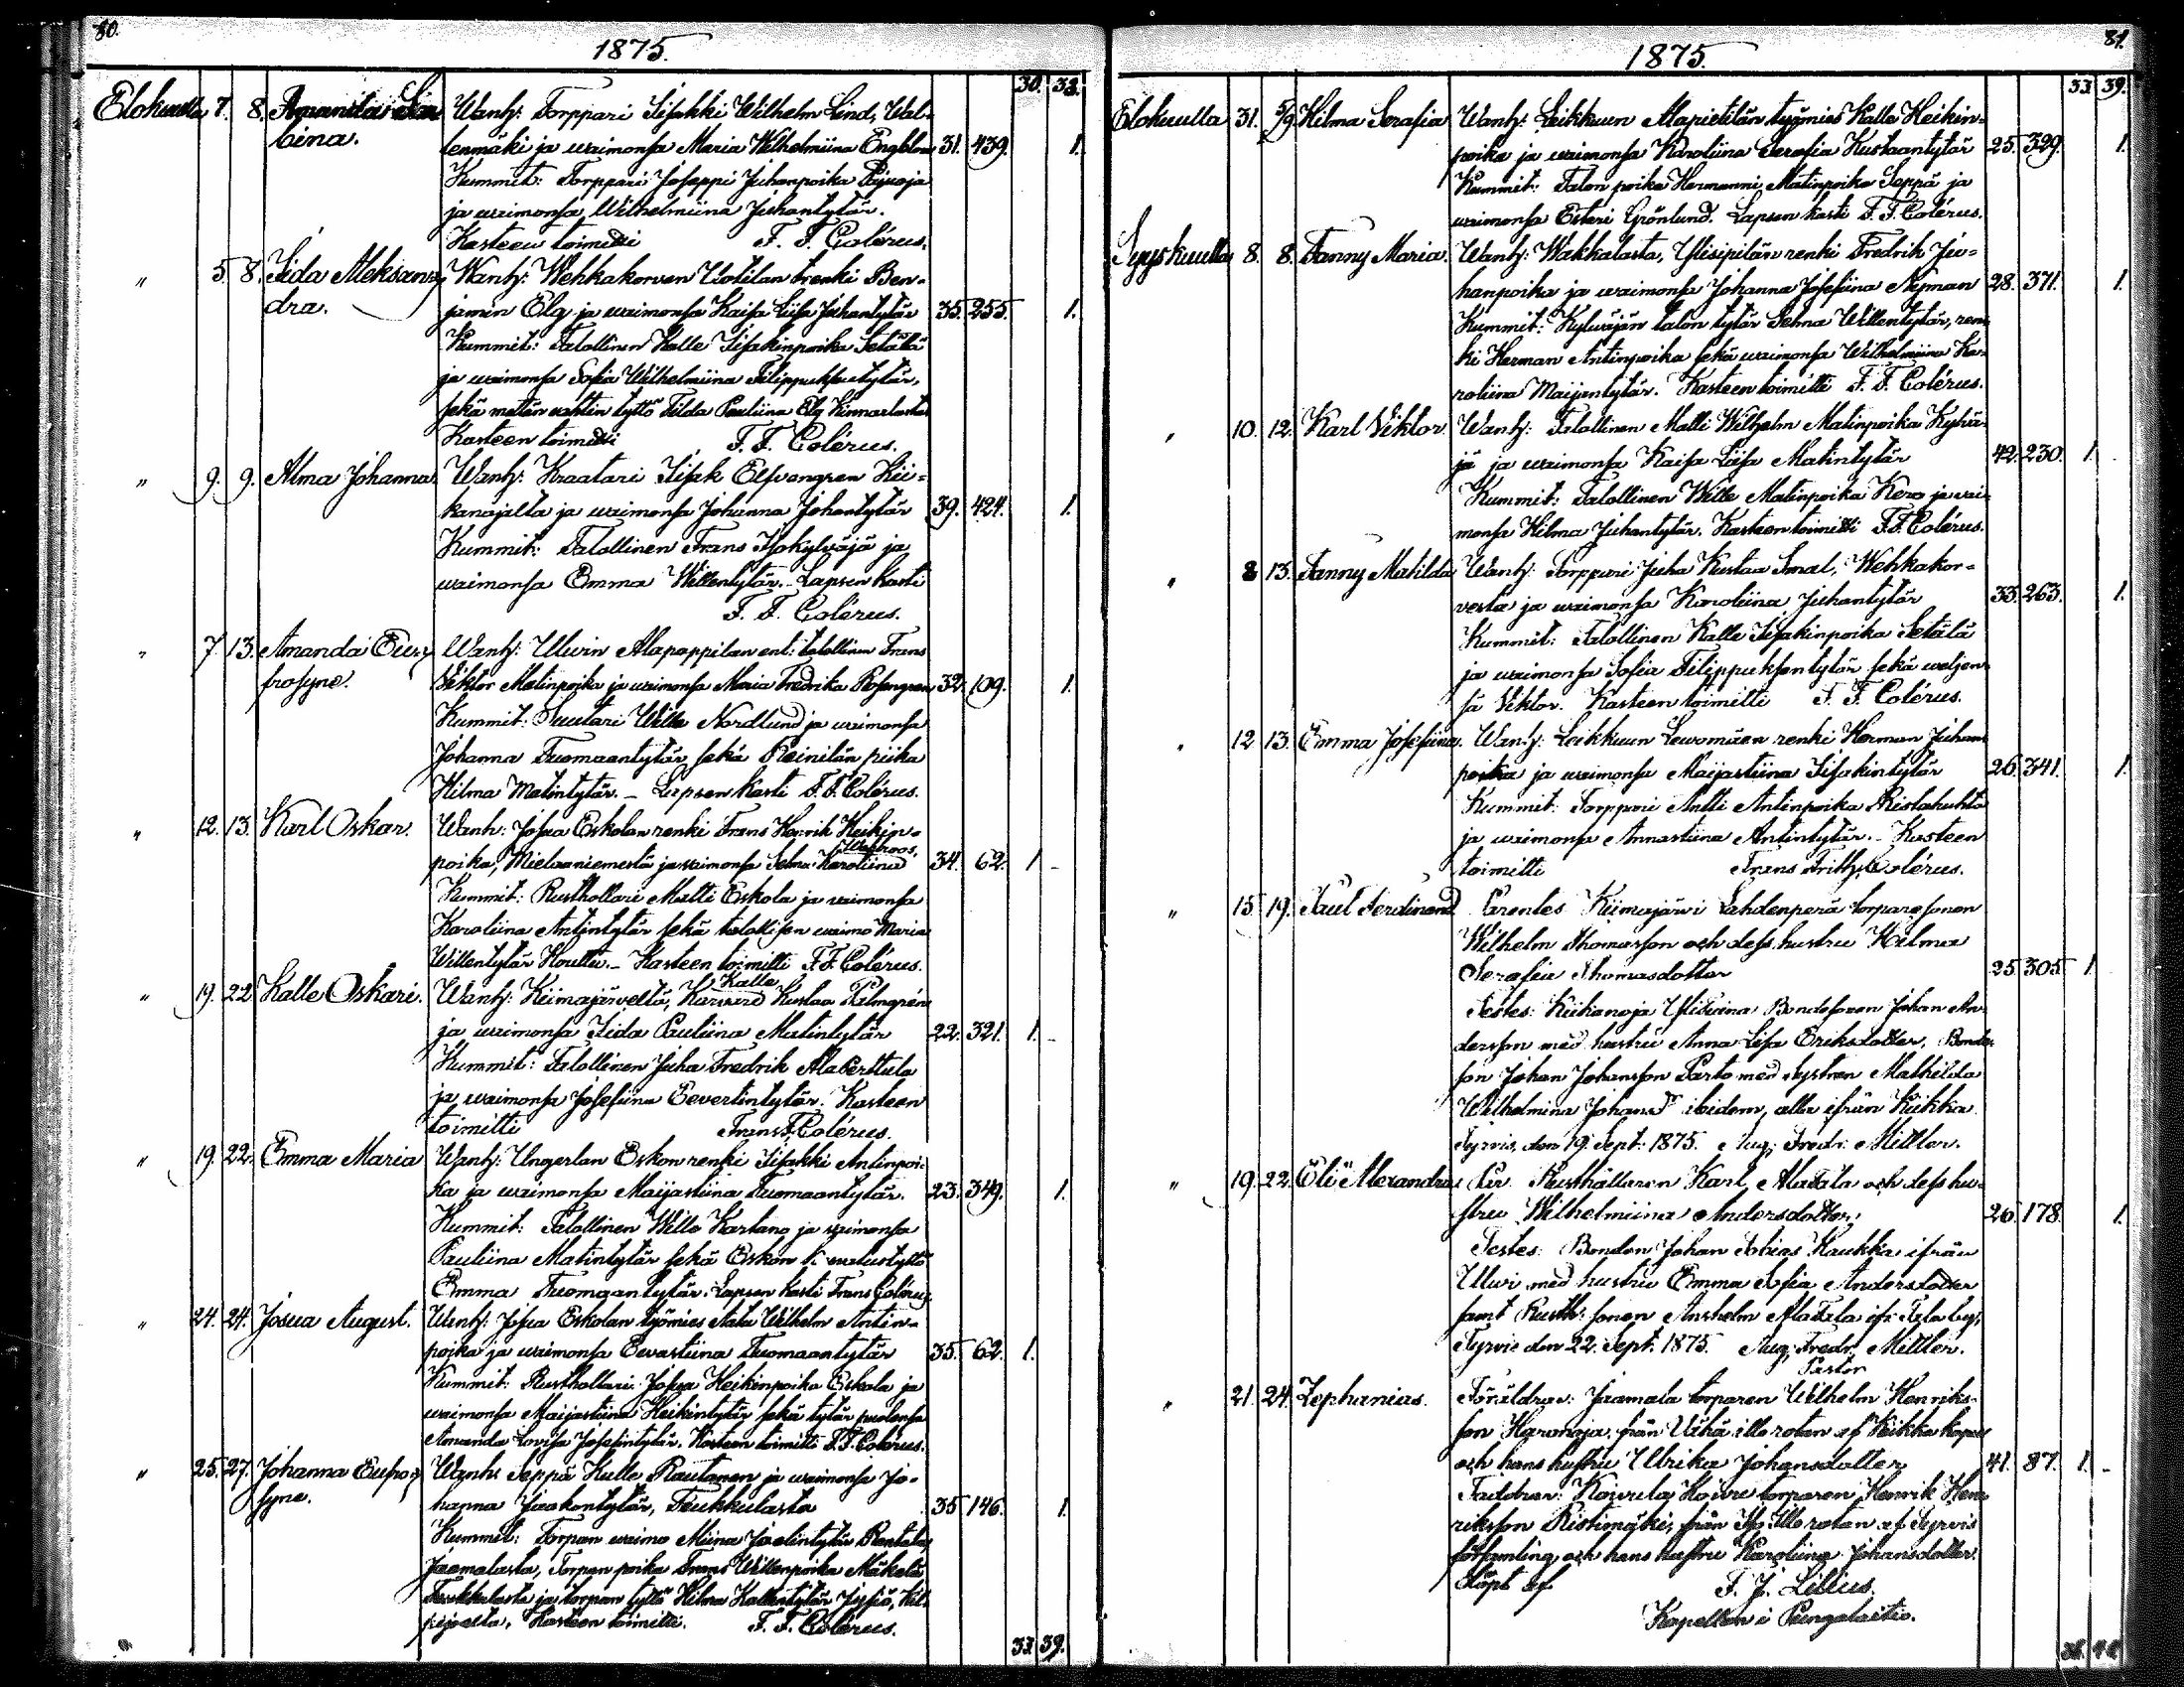 80.
1875.
30. 38.
Elokuulla 7. 8. Wanh: Torppari Iisakki Wilhelm Lind, Wal-
bina. lenmäki ja waimonsa Maria Wilhelmiina Engblom 31. 439. 1.
Kummit: Torppari Joseppi Juhanpoika
ja waimonsa Wilhelmiina Juhantytär.
Kasteen toimitti F. F. Colérus.
" 5. 8. Iida Aleksan- Wanh: Wehkakorven Uotilan renki Ben-
dra. jamin Elg ja waimonsa Kaisa Liisa Juhantytär 35. 255. 1.
Kummit: Talollinen Kalle Iisakinpoika Setälä
ja waimonsa Sofia Wilhelmiina Filippuksentytär,
sekä tyttö Tilda Pauliina Elg Kinnarlasta
Kasteen toimitti F. F. Colérus.
" 9. 9. Alma Johanna Wanh: Kraatari Iisak Elfvengren Kii-
kanojalta ja waimonsa Johanna Johantytär 39. 424. 1.
Kummit: Talollinen Frans Isokylväjä ja
waimonsa Emma Willentytär. - Lapsen kasti
F. F. Colérus.
" 7. 13. Amanda Eu- Wanh: Uluin Alapappilan ent: talollinen Frans
frosyne. Viktor Matinpoika ja waimonsa Maria Fredrika Rosengren 32. 109. 1.
Kummit: Suutari Wille Nordlund ja waimonsa
Johanna Tuomaantytär sekä Reinilän piika
Hilma Matintytär. - Lapsen kasti F. F. Colérus.
" 12. 13. Karl Oskar. Wanh: Josua Eskolan renki Frans Henrik Heikin-
Wahlroos.
poika, Mielaaniemestä ja waimonsa Selma Karoliina 34. 62. 1. -
Kummit: Rusthollari Matti Eskola ja waimonsa
Karoliina Antintytär sekä talollisen waimo Maria
Willentytär Knuttu. - Kasteen toimitti F. F. Colérus.
Kalle
" 19. 22. Kalle Oskari. Wanh: Kiimajärveltä, Kustaa Palmgrén
ja waimonsa Iida Pauliina Matintytär 22. 321. 1. -
Kummit: Talollinen Juha Fredrik AlaPerttula
ja waimonsa Josefiina Eevertintytär. Kasteen
toimitti Frans F. Colérus.
" 19. 22. Emma Maria Wanh: Ungerlan Eskon renki Iisakki Antinpoi-
ka ja waimonsa Maijastiina Tuomaantytär. 23. 349. 1.
Kummit: Talollinen Wille Kartano ja waimonsa
Pauliina Matintytär sekä Eskon kasvatustyttö
Emma Tuomaantytär. Lapsen kasti Frans Colérus.
" 24. 24. Josua August. Wanh: Josua Eskolan työmies Aatu Wilhelm Antin-
poika ja waimonsa Eevastiina Tuomaantytär 35. 62. 1.
Kummit: Rusthollari Josua Heikinpoika Eskola ja
waimonsa Maijastiina Heikintytär sekä tytär puolensa
Amanda Lovisa Josefintytär. Kasteen toimitti F. F. Colérus.
" 25. 27. Johanna Eufro- Wanh: Seppä Kalle Rautanen ja waimonsa Jo-
syne. hanna Jaakontytär, Teukkulasta 35 146. 1.
Kummit: Torpan waimo Miina Joelintytär Rantala
Jaamalasta, Torpan poika Frans Willenpoika Mäkelä
Teukkulasta ja torpan tyttö Hilma Kallentytär
Kasteen toimitti. F. F. Colérus.
33. 39.
81.
1875.
33. 39.
Elokuulla 31. 5/9 Hilma Serafia Wanh: Leikkuun Alapietilän työmies Kalle Heikin-
poika ja waimonsa Karoliina Serafia Kustaantytär 25. 329. 1.
Kummit: Talon poika Hermanni Matinpoika Seppä ja
waimonsa Esteri Grönlund. Lapsen kasti F. F. Colérus.
Syyskuulla 8. 8. Fanny Maria. Wanh: Wakkalasta, Ylisipilän renki Fredrik Ju-
hanpoika ja waimonsa Johanna Josefiina Nyman 28. 371. 1.
Kummit: Kylväjän talon tytär Selma Willentytär, ren-
ki Herman Antinpoika sekä waimonsa Wilhelmiina Ka-
roliina Maijantytär. Kasteen toimitti F. F. Colérus.
" 10. 12. Karl Viktor. Wanh: Talollinen Malli Wilhelm Matinpoika Kylvä-
jä ja waimonsa Kaisa Liisa Matintytär 42. 230. 1.
Kummit: Talollinen Wille Matinpoika Kero ja wai-
monsa Hilma Juhantytär. Kasteen toimitti F. F. Colérus.
" 8 13. Fanny Matilda Wanh: Torppari Juha Kustaa Smal, Wehkakor-
vesta ja waimonsa Karoliina Juhantytär 33. 263. 1.
Kummit: Talollinen Kalle Iisakinpoika Setälä
ja waimonsa Sofia Filippuksentytär sekä weljen-
sä Viktor. Kasteen toimitti F. F. Colérus.
" 12 13. Emma Josefiina. Wanh: Leikkuun Lewomäen renki Herman Juhan
poika ja waimonsa Maijastiina Iisakintytär 26. 341. 1.
Kummit: Torppari Antti Antinpoika Ristahuhta
ja waimonsa Annastiina Antintytär. - Kasteen
toimitti Frans Frithj. Colérus.
" 15 19. Paul Ferdinand Parentes Kiimajärvi Lahdenperä torparesonen
Wilhelm Thomasson och dess hustru Hilma
Serafia Thomasdotter 25 305 1.
Testes: Kiikanoja Bondesonen Johan An-
dersson med hustru Anna Lisa Eriksdotter, Bonde-
son Johan Johansson Parto med systren Mathilda
Wilhelmina Johansdr ibidem, alla ifrån Kiikka.
Tyrvis, den 19 Sept: 1875. Aug: Fredr: Mittler.
" 19. 22. Eli Alexandra Par. Rusthållaren Karl AlaTala och dess hu-
stru Wilhelmiina Andersdotter; 26. 178. 1.
Testes: Bonden Johan Tobias Kaukka ifrån
Uluri med hustru Emma Sofia Andersdotter
samt Rusth: sonen Anshelm AlaTala ifr. Tala by,
Tyrvis den 22. Sept. 1875. Aug: Fredr: Mittler.
Pastor
" 21. 24. Zephanias. Föräldrar: Jaamala torparen Wilhelm Henriks-
son Haronoja, från Vähä illo rotan af Kiikka kapell
och hans hustru Ulrika Johansdotter 41. 87. 1. -
Faddrar: Kaurula torparen Henrik Hen-
riksson Ristimäki, från Iso Illo rotan af Tyrvis
församling och hans hustru Karoliina Johansdotter.
Döpt af F. J. Lilius.
Kapellan i Pungalaitio.